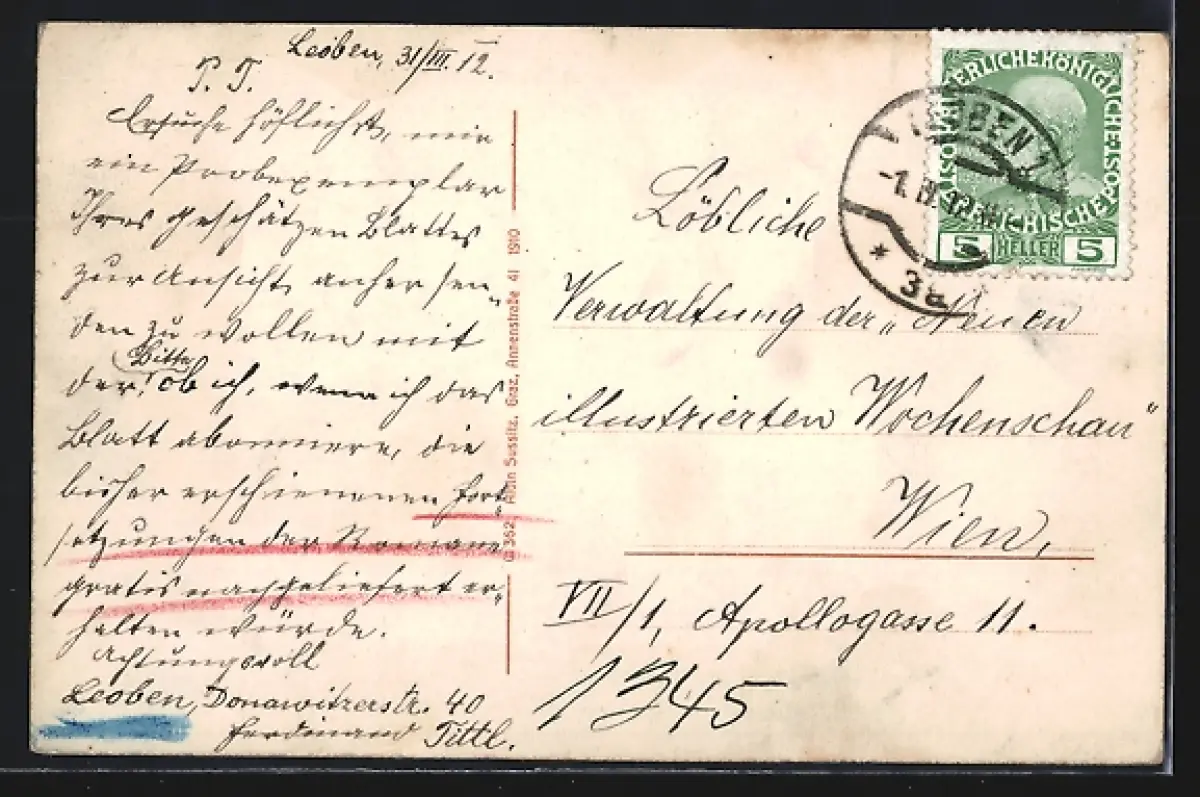 Leoben, 31/III. 12.
P. T.
Ersuche höflichst, mir
ein Probeexemplar
Ihres geschätzen Blattes
zur Ansicht anher sen-
den zu wollen mit
der Bitte! ob ich, wenn ich das
Blatt abonniere, die
bisher erschienenen Fort-
setzungen der Romane
gratis nachgeliefert er-
halten würde.
Achtungsvoll
Leoben, Donawitzerstr. 40
Ferdinand Tittl.
G 362 Albin Sussitz, Graz, Annenstraße 41 1910
KAISERLICHE KÖNIGLICHE ÖSTERREICHISCHE POST
5 HELLER 5
LEOBEN 1
-1. IV. 12
* 3a
Löbliche
Verwaltung der „Neuen
illustrierten Wochenschau"
Wien,
VII/1, Apollogasse 11.
1345